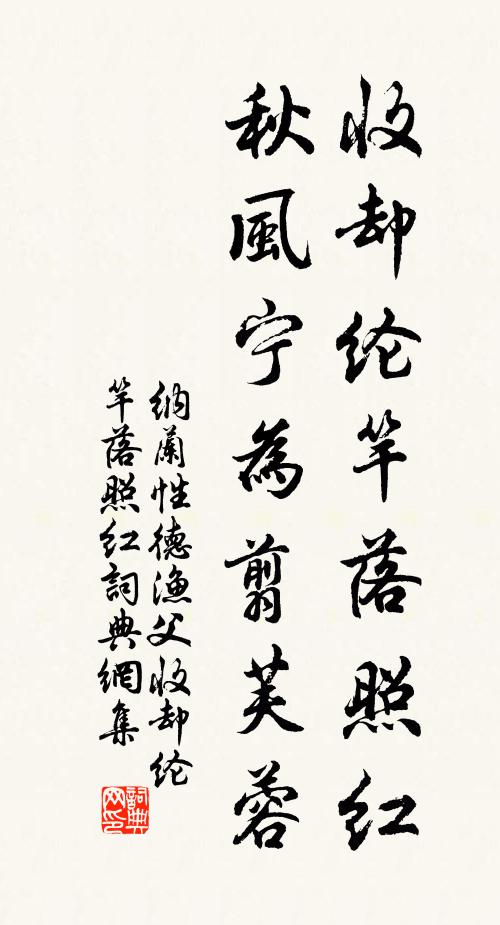 收却纶竿落照红
秋風宁為翦芙蓉
纳蘭性德渔父收却纶
竿落照红詞典網集
詞典
网印